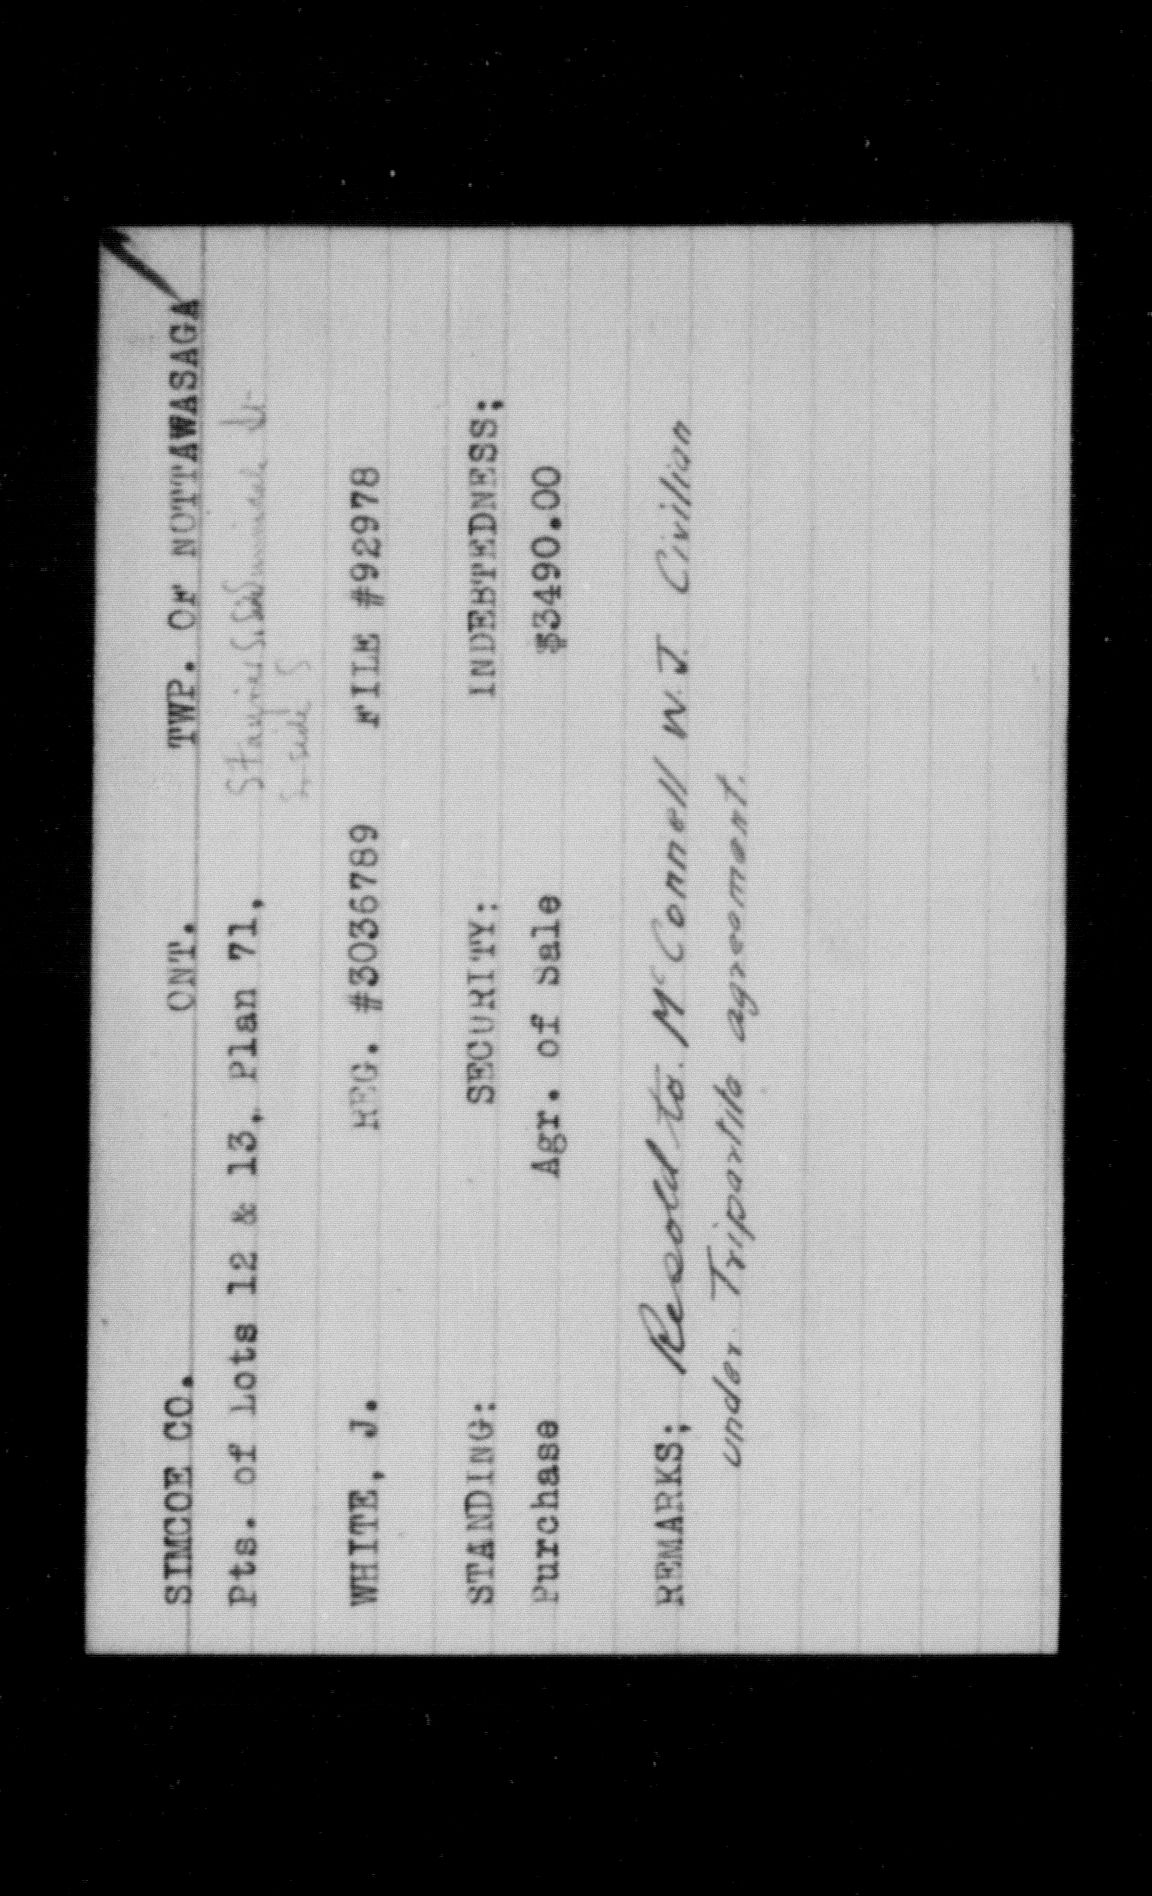 SIMCOE CO. ONT. TWP. OF NOTTAWASAGA
Pts. of Lots 12 & 13, Plan 71, Stayner S. Side
S. side
WHITE, J. REG. #3036789 FILE #92978
STANDING: SECURITY: INDEBTEDNESS;
Purchase Agr. of Sale $3490.00
REMARKS; Resold to. McConnell W.J. Civilian
under Tripartite agreement.